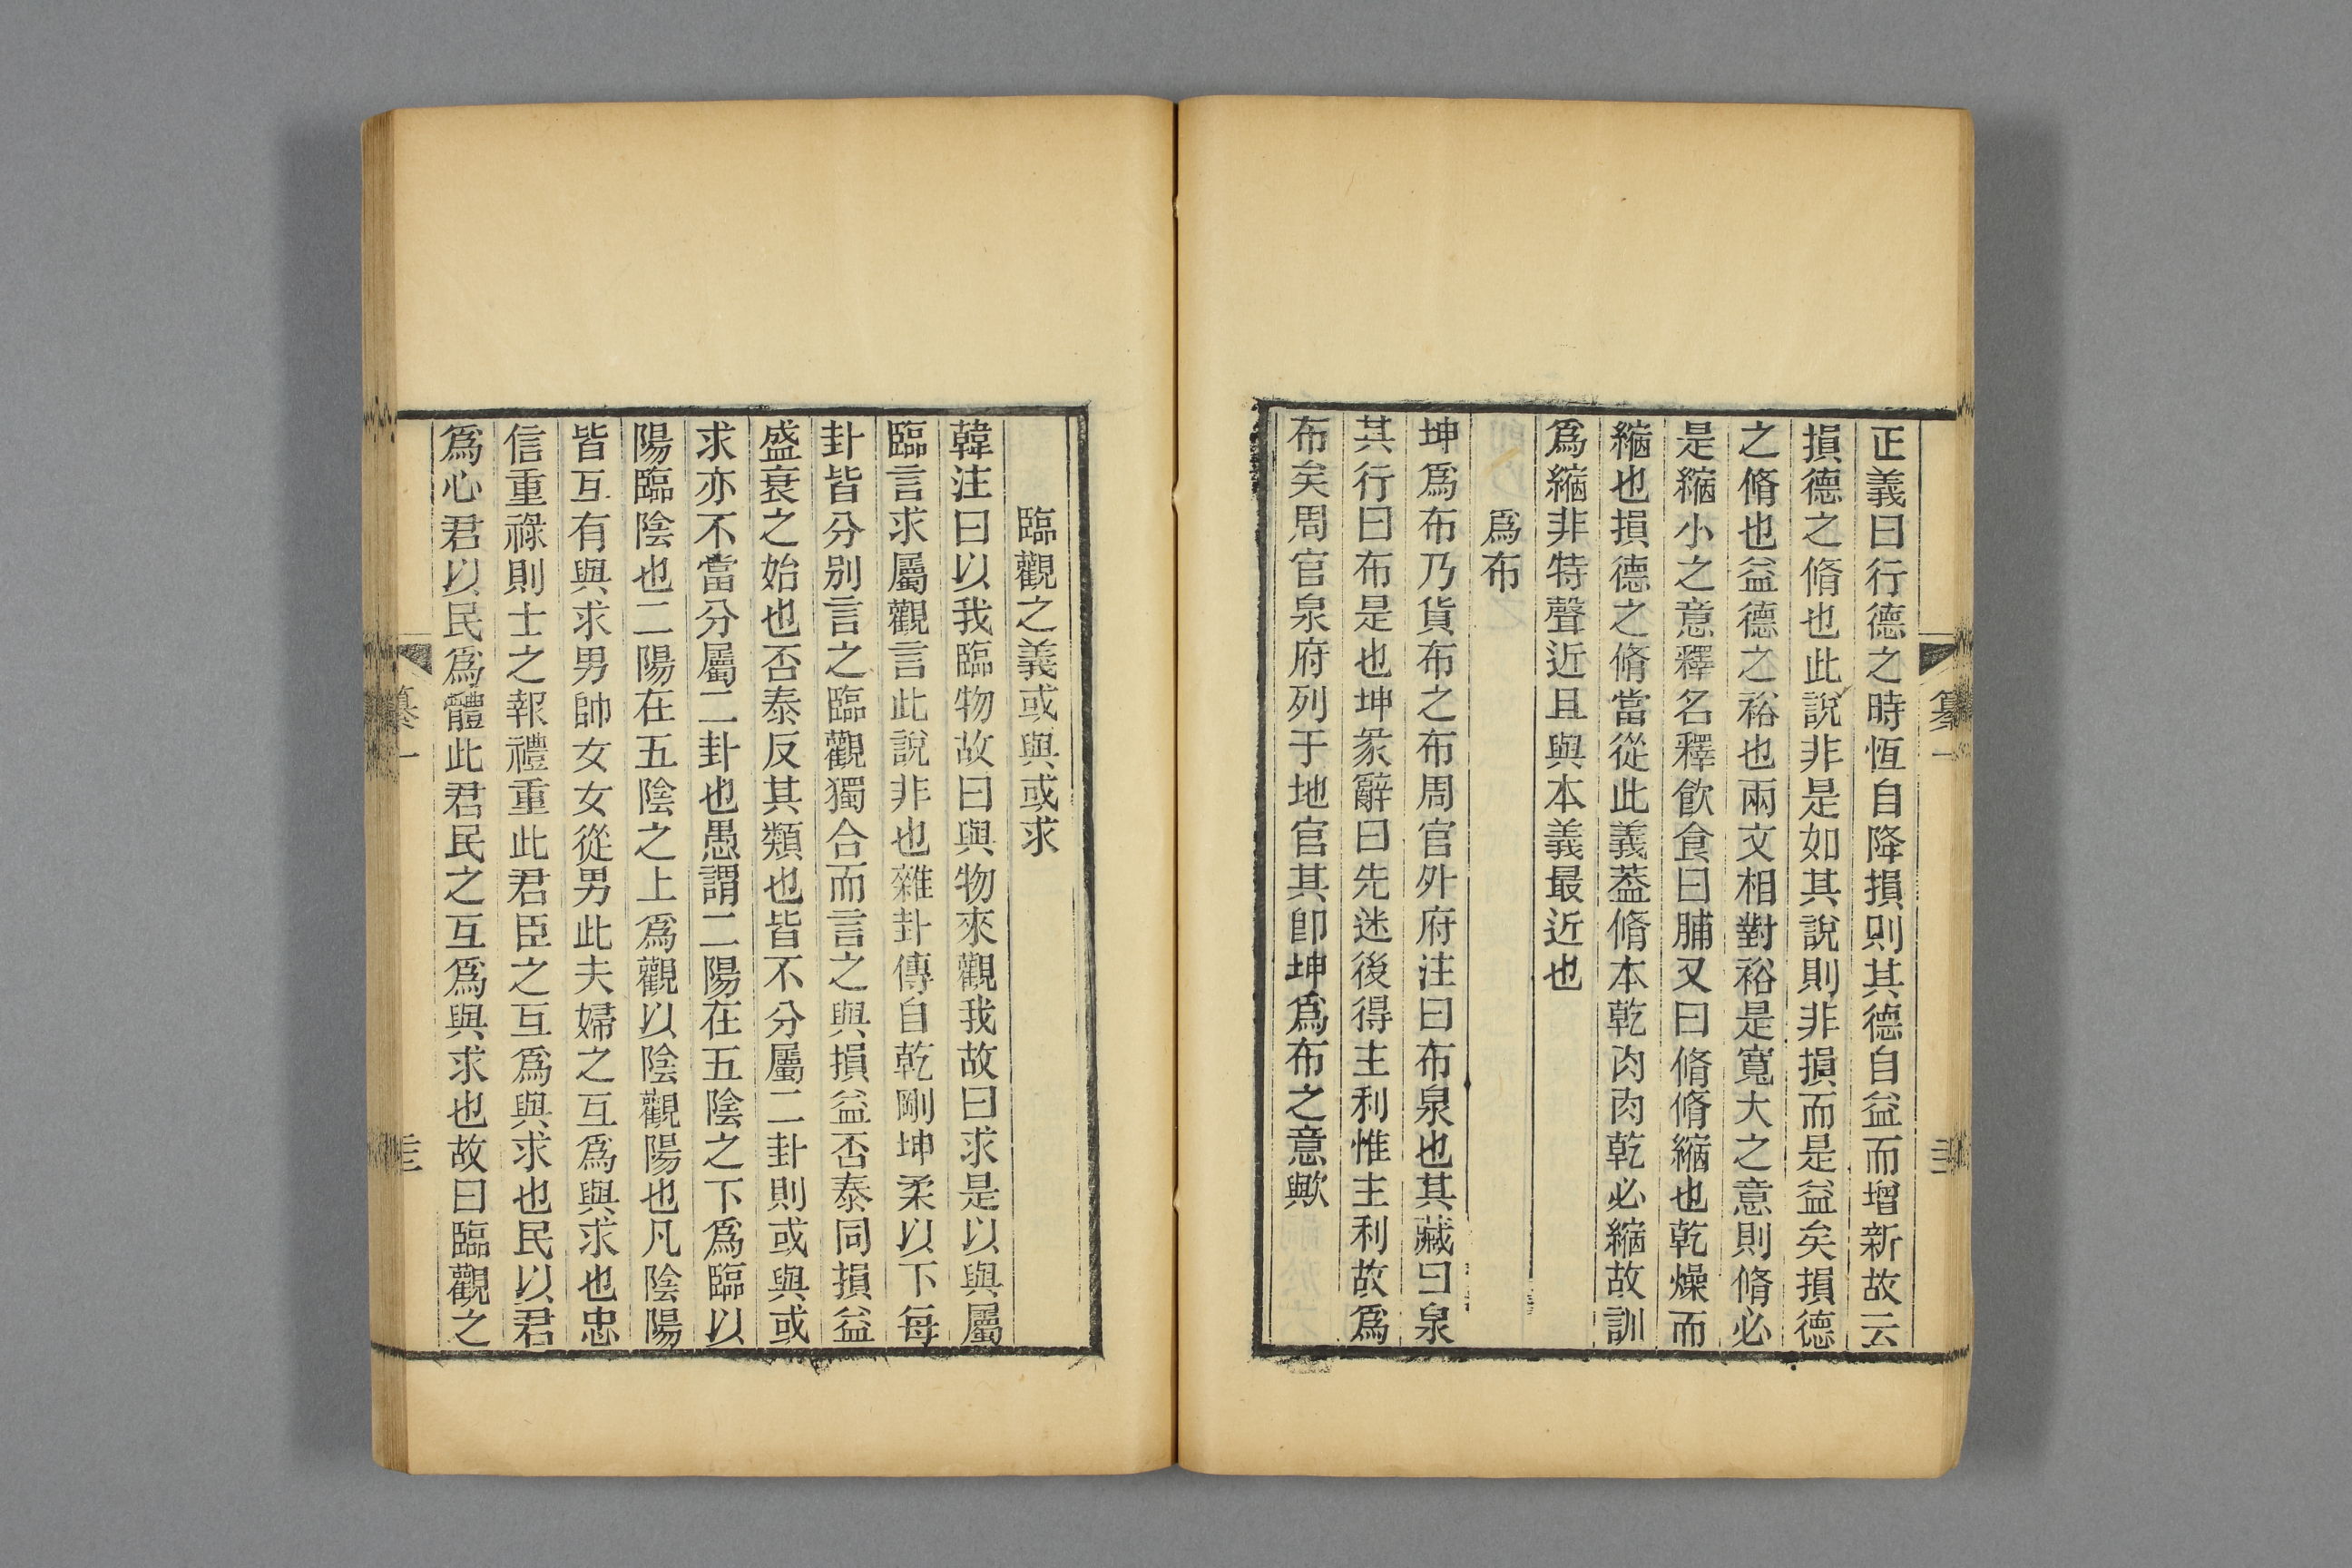 正義曰行德之時恆自降損則其德自益而增新故云
損德之脩也此說非是如其說則非損而是益矣損德
之脩也益德之裕也兩文相對裕是寬大之意則脩必
是縮小之意釋名釋飮食曰脯又曰脩脩縮也乾燥而
縮也損德之脩當從此義葢脩本乾肉肉乾必縮故訓
爲縮非特聲近且與本義最近也
爲布
坤爲布乃貨布之布周官外府注曰布泉也其藏曰泉
其行曰布是也坤彖辭曰先迷後得主利惟主利故爲
布矣周官泉府列于地官其卽坤爲布之意歟
纂一
臨觀之義或與或求
韓注曰以我臨物故曰與物來觀我故曰求是以與屬
臨言求屬觀言此說非也雜卦傳自乾剛坤柔以下每
卦皆分別言之臨觀獨合而言之與損益否泰同損益
盛衰之始也否泰反其類也皆不分屬二卦則或與或
求亦不當分屬二卦也愚謂二陽在五陰之下爲臨以
陽臨陰也二陽在五陰之上爲觀以陰觀陽也凡陰陽
皆互有與求男帥女女從男此夫婦之互爲與求也忠
信重祿則士之報禮重此君臣之互爲與求也民以君
爲心君以民爲體此君民之互爲與求也故曰臨觀之
纂一